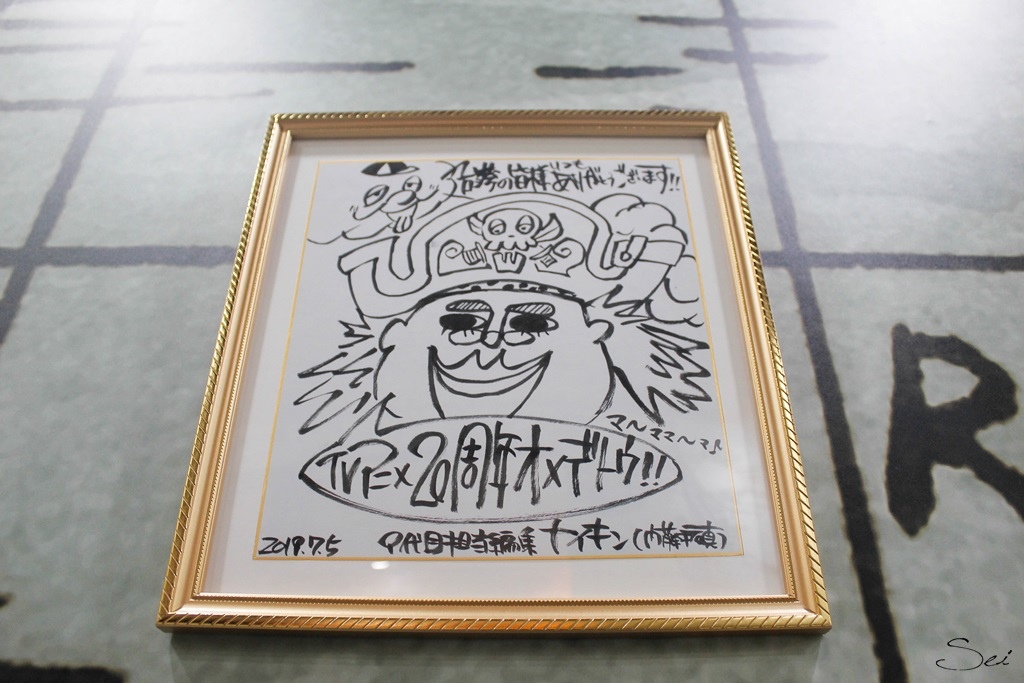 関係の皆様いつもありがとうございます!!
マ〜ママ〜マ♪
TVアニメ20周年オメデトウ!!
2019.7.5 9代目担当編集 ナイキン(内藤拓真)
R
Sei